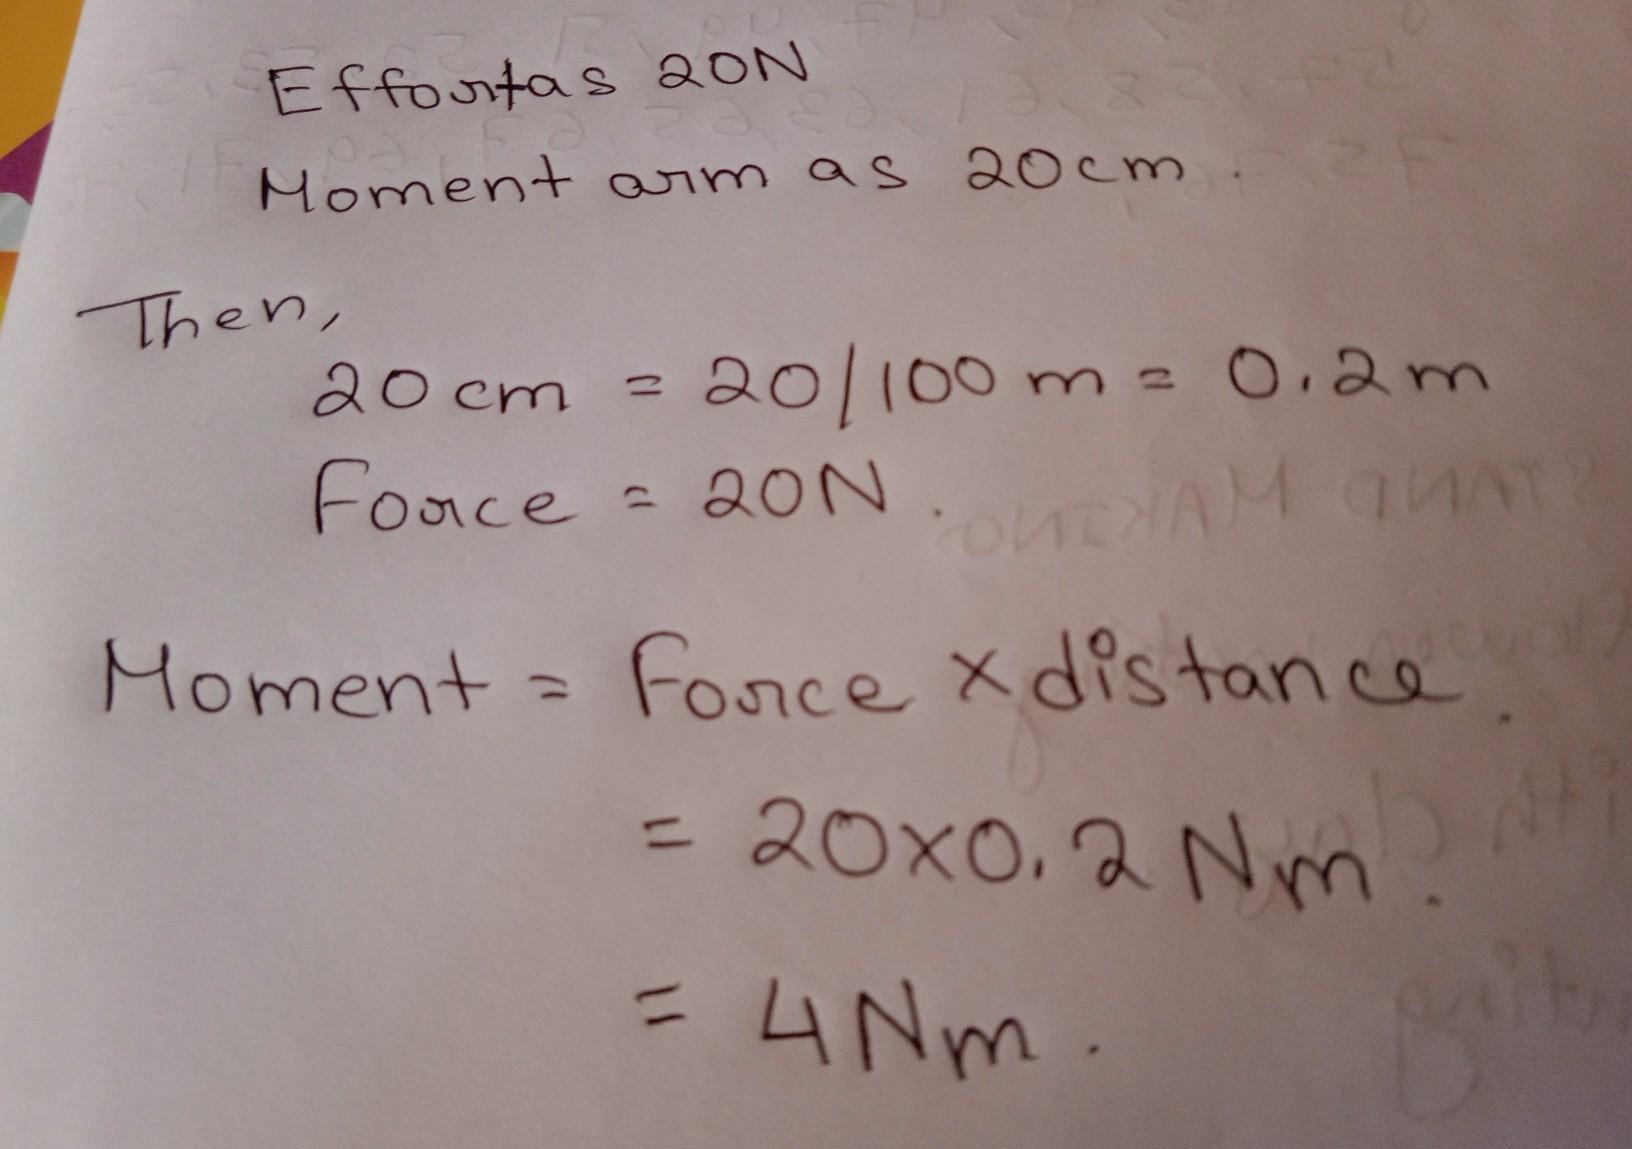 Effortas 20N
Moment arm as 20cm.
Then,
20 cm = 20/100 m = 0.2 m
Force = 20N.
Moment = Force x distance.
= 20x0.2 Nm.
= 4 Nm.